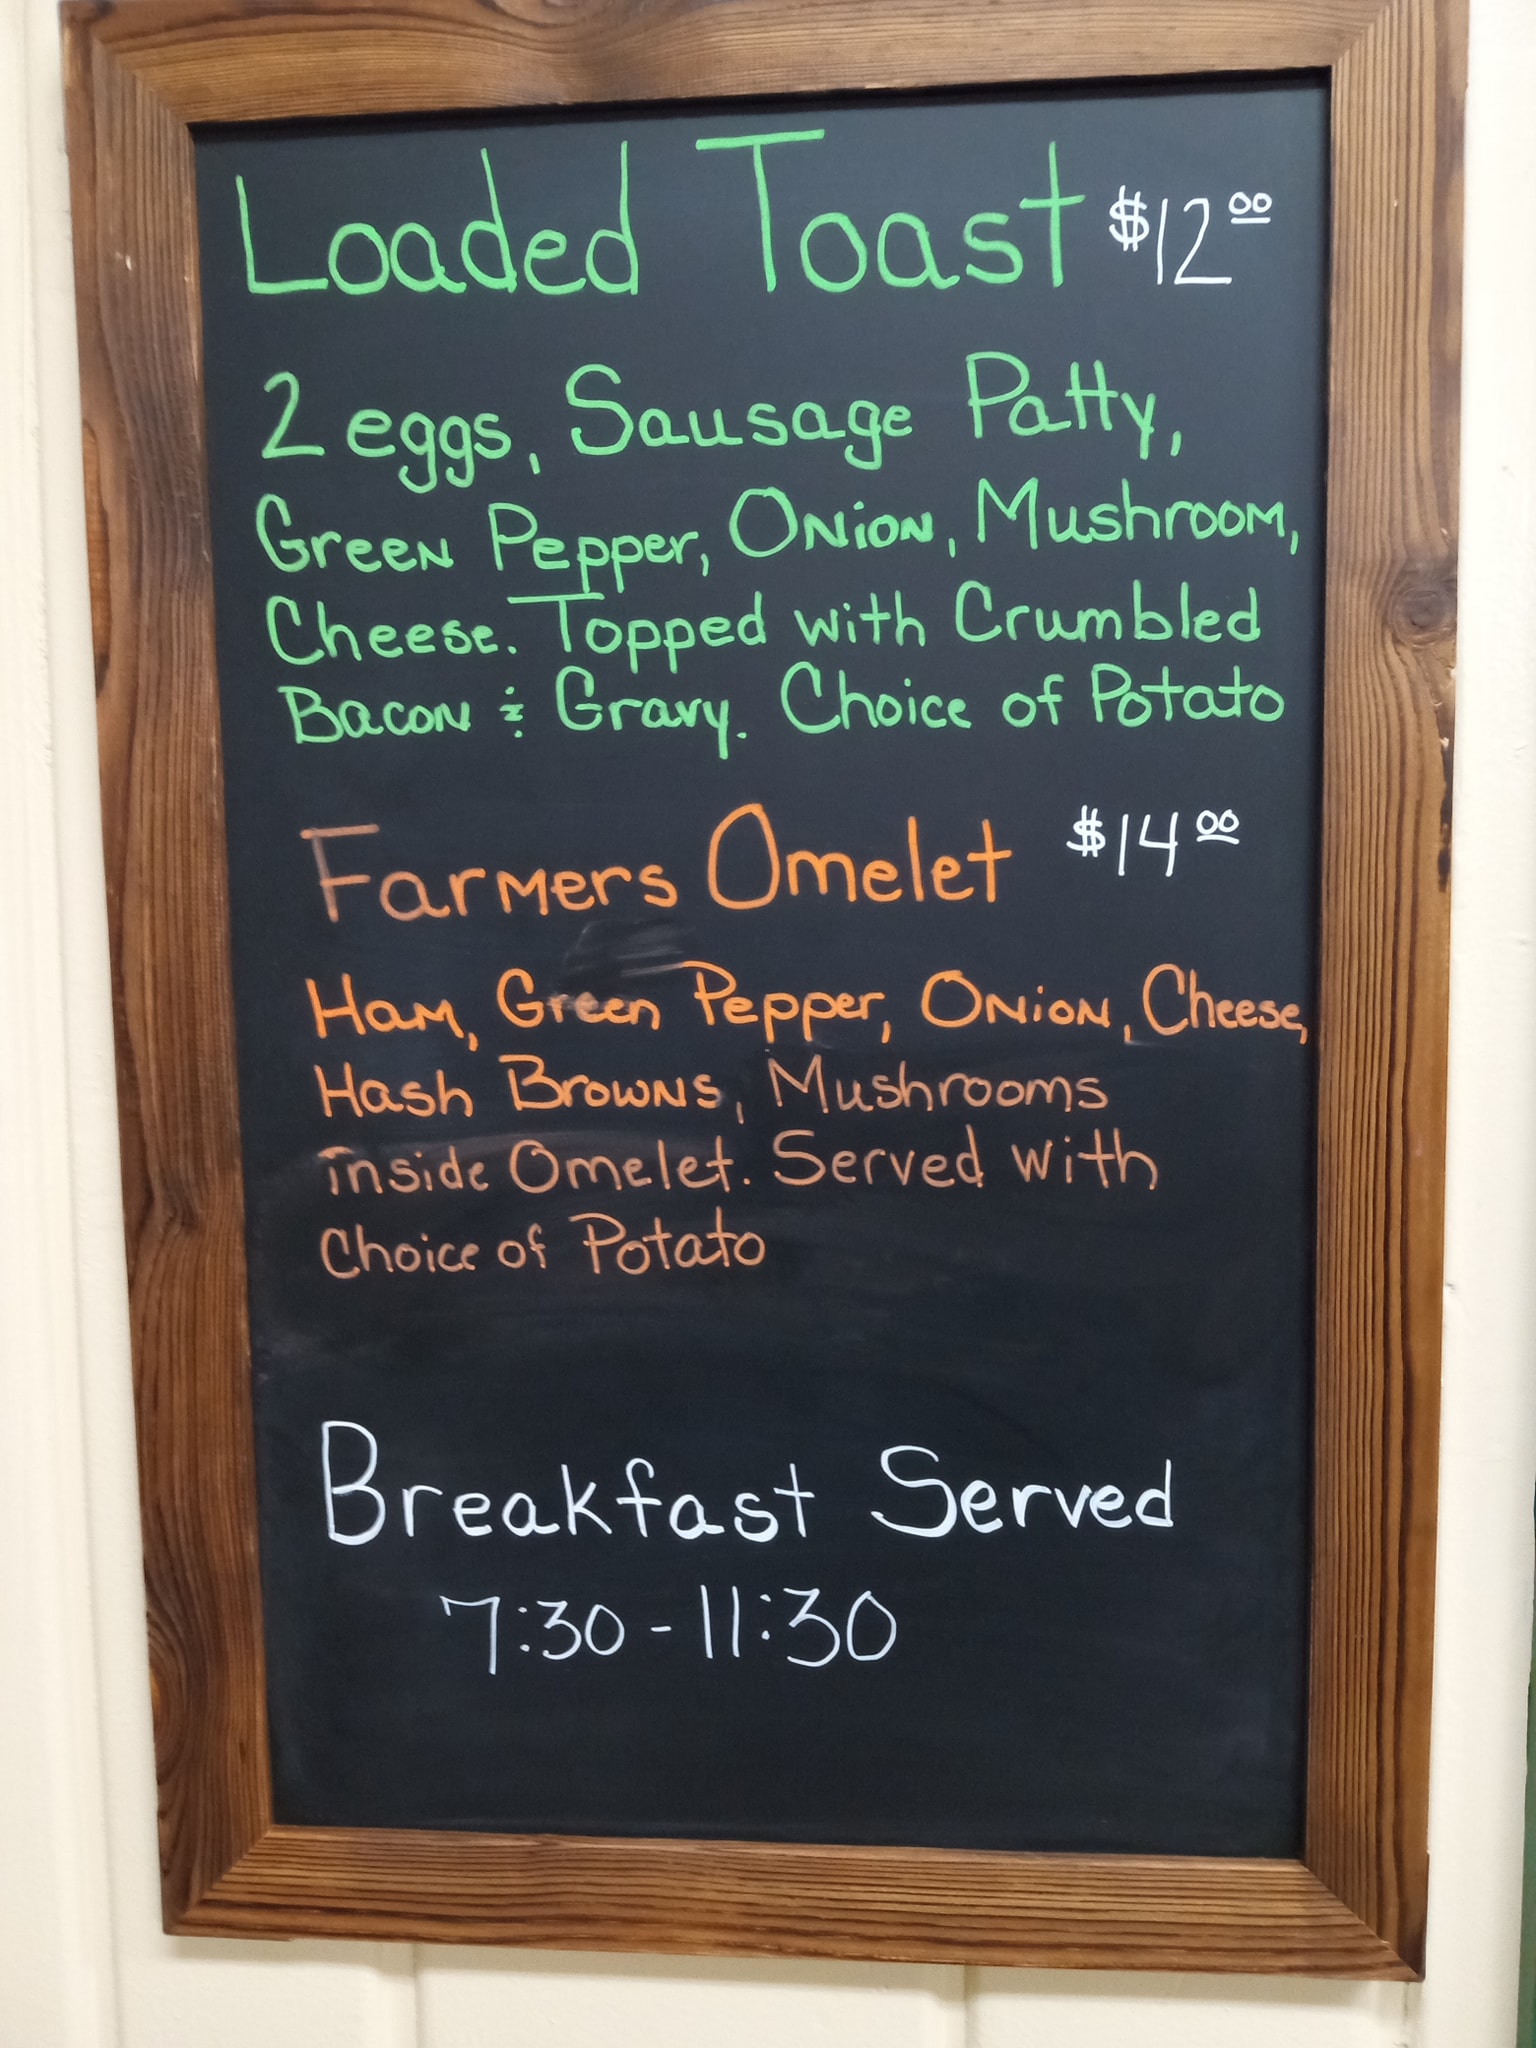 Loaded Toast $12 00
2 eggs, Sausage Patty,
Green Pepper, Onion, Mushroom,
Cheese. Topped with Crumbled
Bacon & Gravy. Choice of Potato
Farmers Omelet $14 00
Ham, Green Pepper, Onion, Cheese,
Hash Browns, Mushrooms
inside Omelet. Served with
Choice of Potato
Breakfast Served
7:30 - 11:30